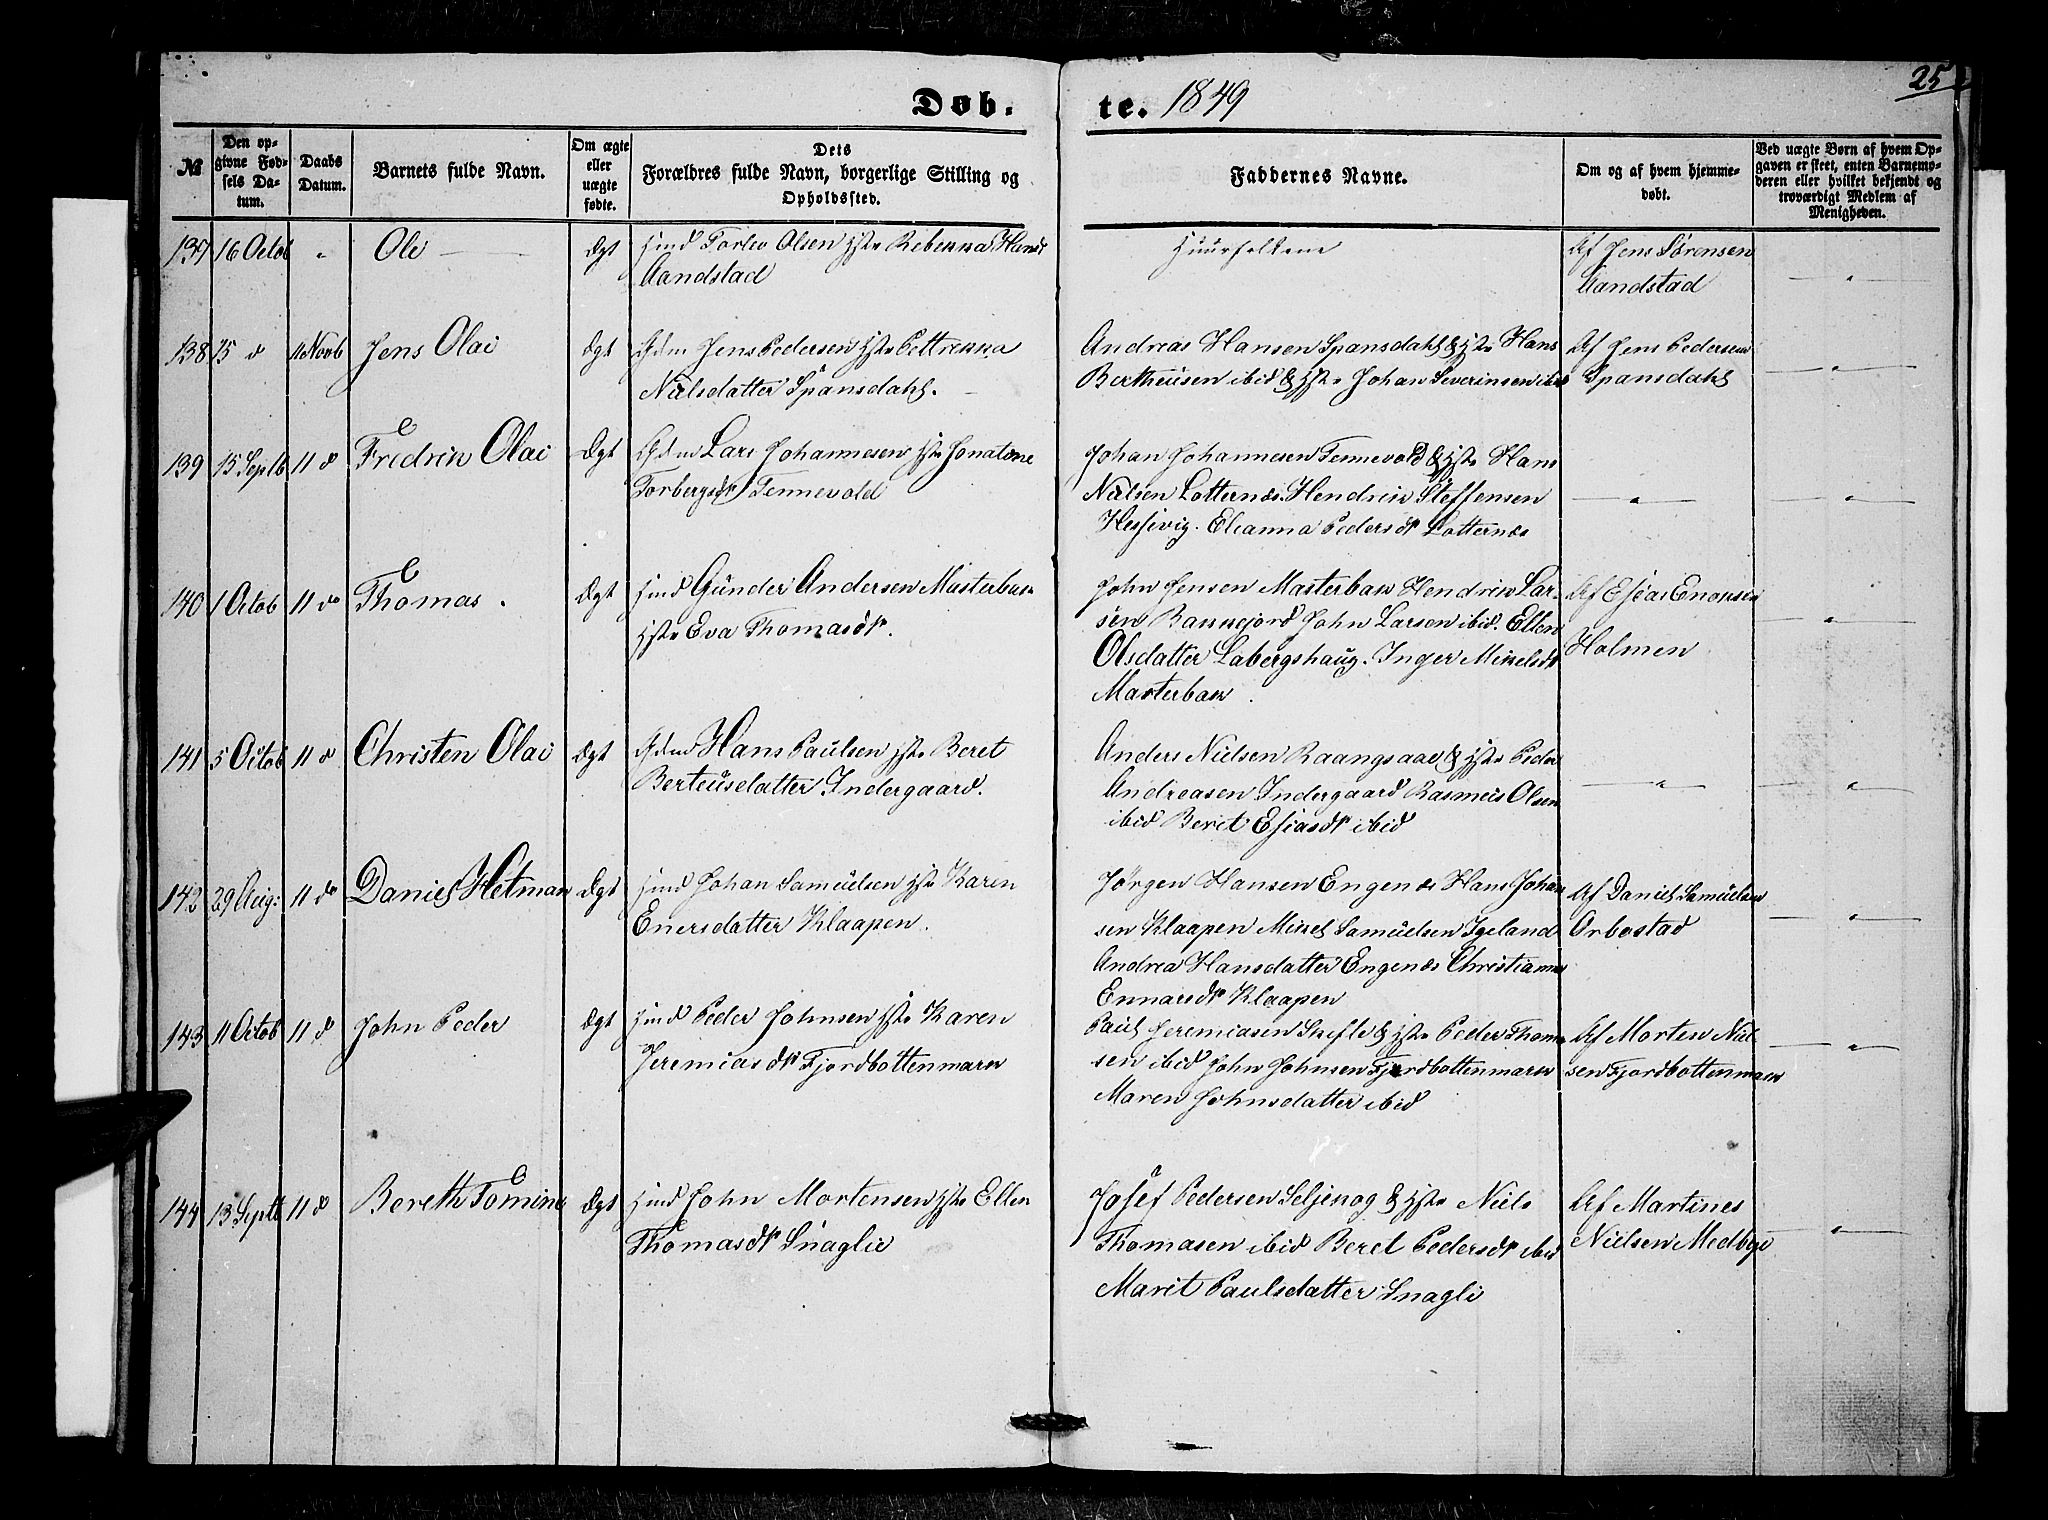 25
Døb.
te. 1849
№
Den op-
givne Fød-
sels Da-
tum.
Daabs
Datum.
Barnets fulde Navn.
Om ægte
eller
uægte
fødte.
Dets
Forældres fulde Navn, borgerlige Stilling og
Opholdssted.
Faddernes Navne.
Om og af hvem hjemme-
døbt.
Ved uægte Børn af hvem Op-
gaven er skeet, enten Barnemo-
deren eller hvilket bekjendt og
troværdigt Medlem af
Menigheden.
137 16 Octob " Ole
Ægt
Ind Torlev Olsen Hstr Rebekka Hansd
Aandstad
Huusfolkene
Af Jens Sørensen
Aandstad
"
138 15 d 11 Novb Jens Olai
Ægt
Gdm Jens Pedersen Hstr Pettrikka
Nielsdatter Spansdahl.
Andreas Hansen Spansdahl & Hstr Hans
Bertheusen ibid & Hstr Johan Severinsen ibid
Af Jens Pedersen
Spansdahl
"
139 15 Septb 11 d Fredrik Olai
Ægt
Gdm Lars Johannesen Hstr Jonatone
Torbergsdr Tennevold
Johan Johannesen Tennevold & Hstr Hans
Nielsen Lotternæs. Hendrik Steffensen
Hessivig. Eleanna Pedersdr Lotternæs
"
"
140 1 Octob 11 do Thomas.
Ægt
Ind Gunder Andersen Masterbak
Hstr Eva Thomasdr.
John Jensen Masterbak Hendrik Lar-
sen Bannejord John Larsen ibid. Ellen
Olsdatter Labergshaug. Inger Mikelsdr
Masterbak.
Af Esias Enoksen
Holmen
"
141 5 Octob 11 d Christen Olai
Ægt
Gdm Hans Paulsen Hstr Beret
Berteusdatter Indergaard.
Anders Nielsen Raangsaae & Hstr Peder
Andreasen Indergaard Rasmus Olsen
ibid Beret Esiasdr ibid
"
"
142 29 Aug: 11 do Daniel Hetman
Ægt
Ind Johan Samuelsen Hstr Karen
Enersdatter Klaapen.
Jørgen Hansen Engenæs Hans Johan
sen Klaapen Mikel Samuelsen Igeland
Andrea Hansdatter Engenæs Christianna
Ennarsdr Klaapen
Af Daniel Samuelsen
Orbostad
"
143 11 Octob 11 d John Peder
Ægt
Ind Peder Johnsen Hstr Karen
Jeremiasdr Fjordbottenmark
Paul Jeremiasen Skefle & Hstr Peder Thoma
sen ibid John Johnsen Fjordbottenmark
Maren Johnsdatter ibid
Af Morten Niel-
sen Fjordbottenmark
"
144 13 Septb 11 d Bereth Tomine
Ægt
Ind John Mortensen Hstr Ellen
Thomasdr Snaglie
Josef Pedersen Seljeskog & Hstr Niels
Thomasen ibid Beret Pedersdr ibid
Marit Paulsdatter Snagli
Af Martines
Nielsen Medbye
"